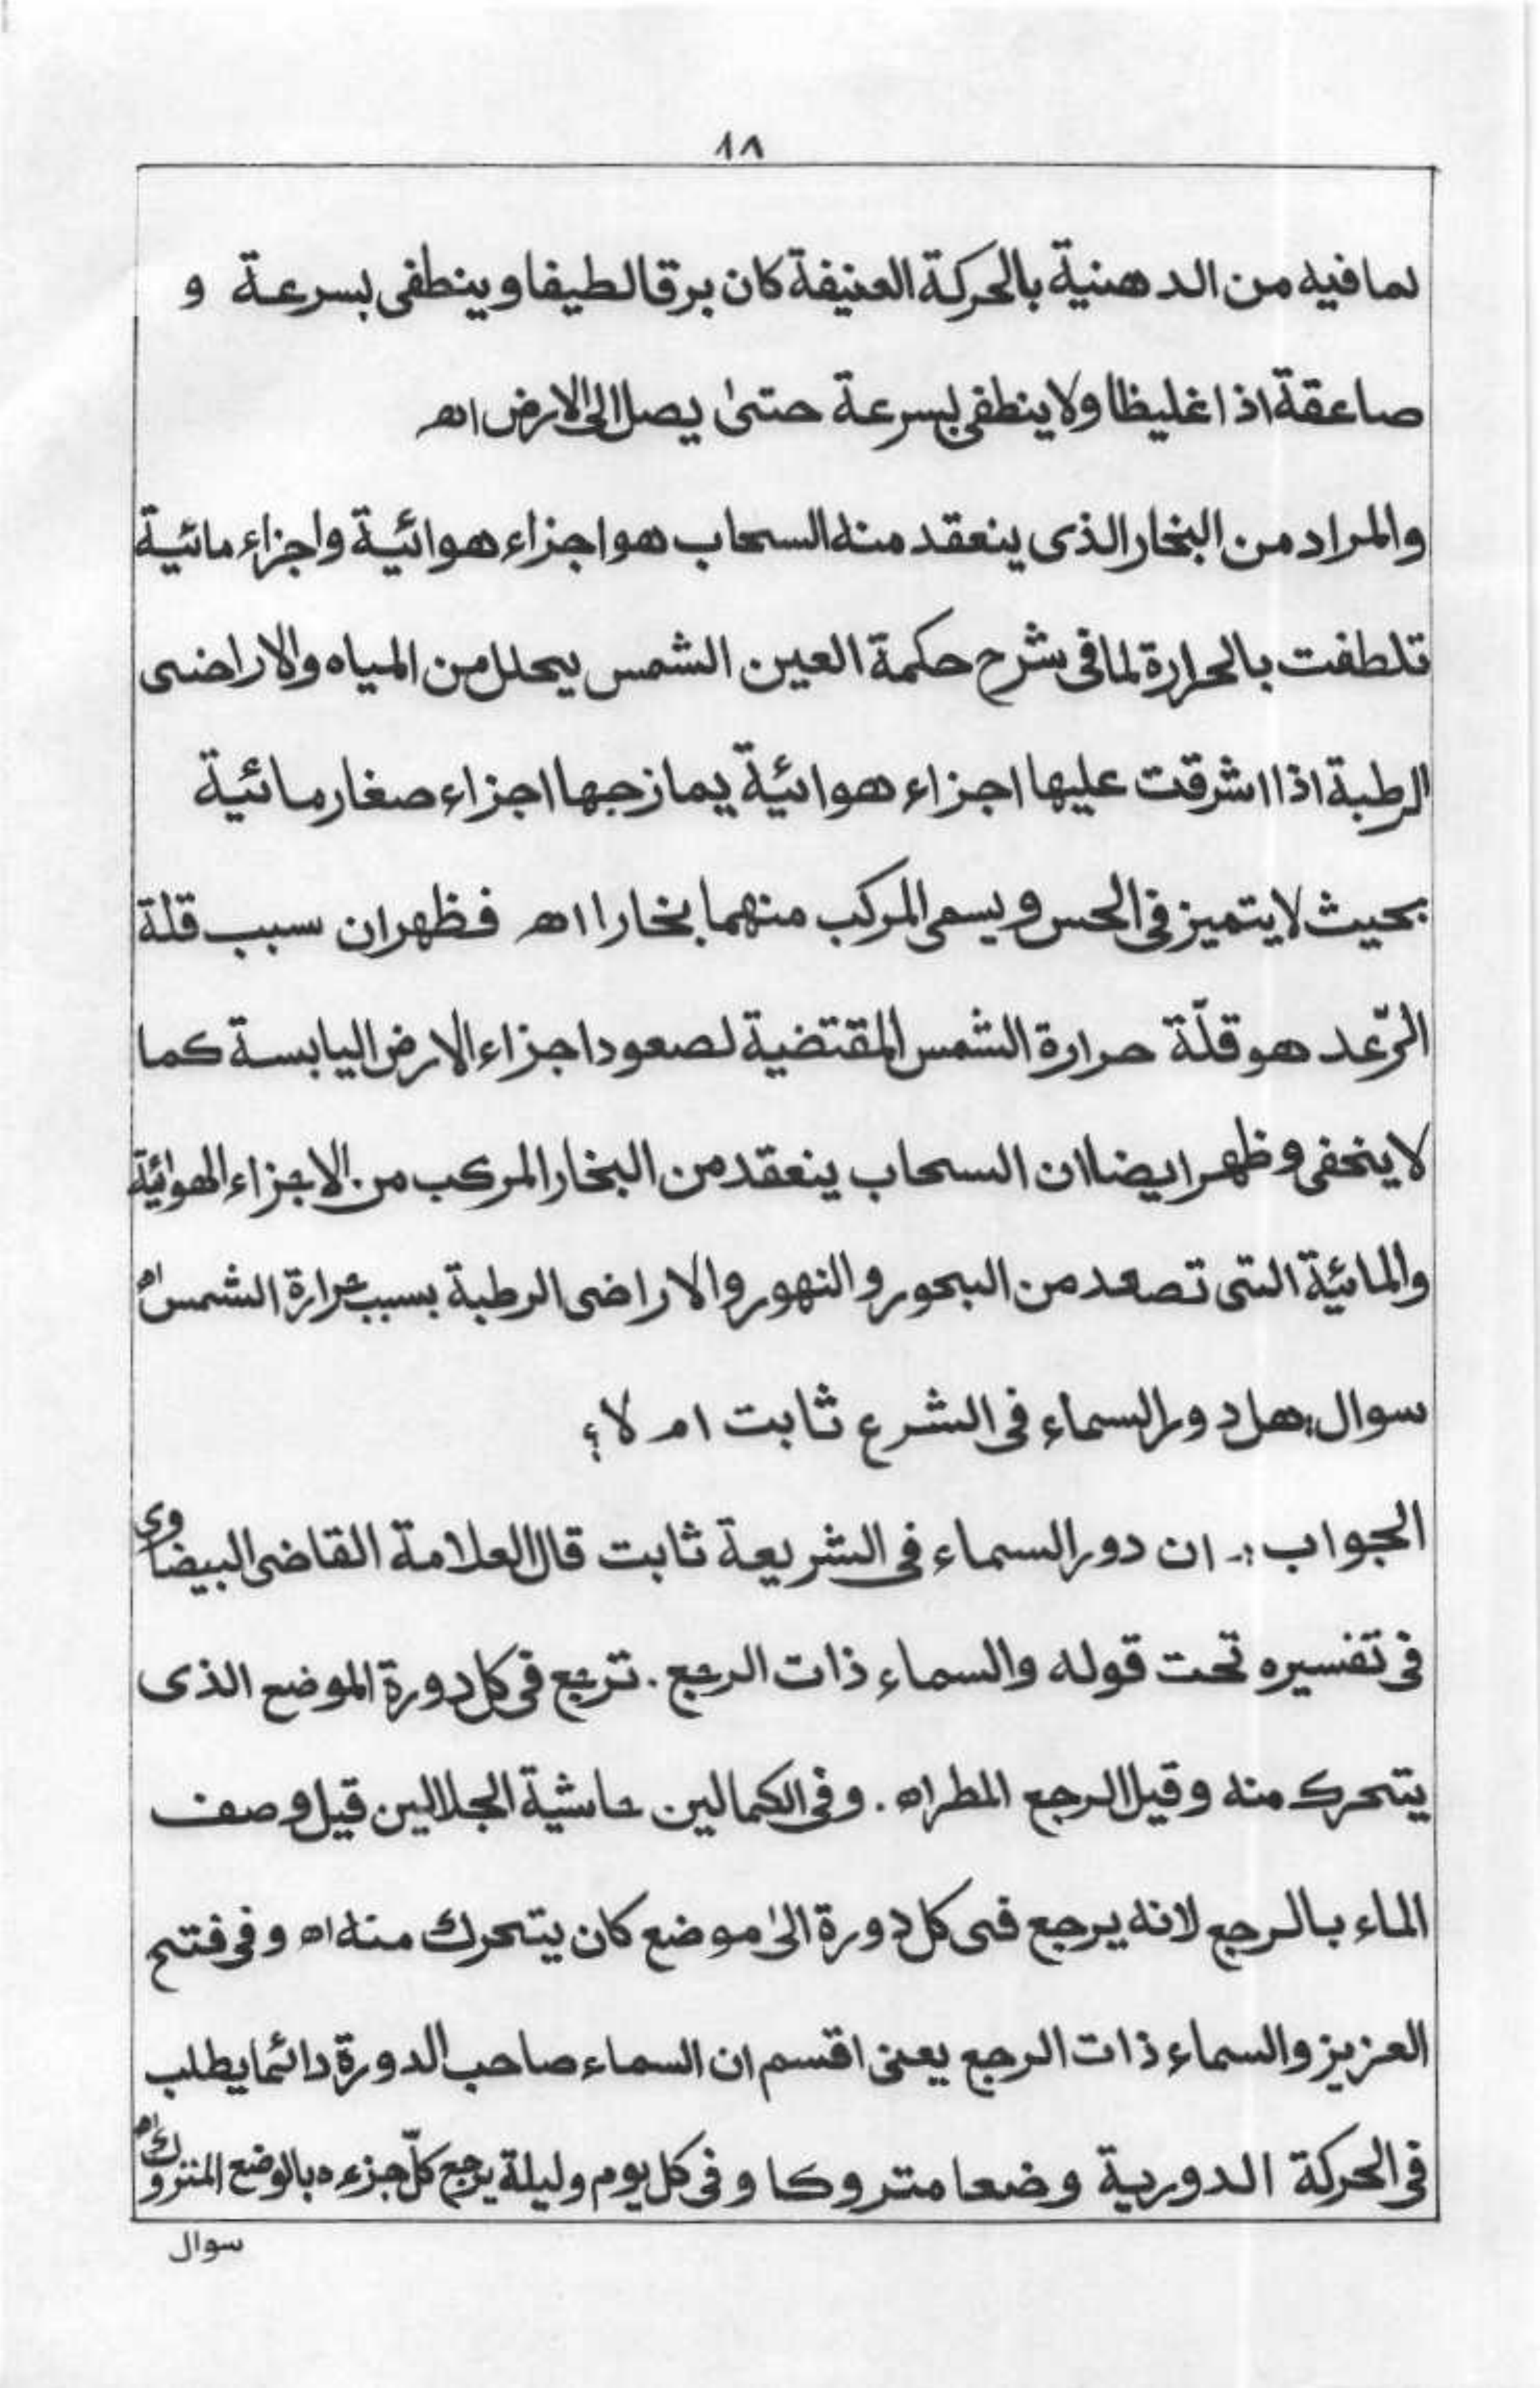 ١٨
لما فيه من الدهنية بالحركة العنيفة كان برقا لطيفا و ينطفى بسرعة و
صاعقة اذا غليظا ولا ينطفى بسرعة حتىٰ يصل الى الارض اھ
والمراد من البخار الذى ينعقد منه السحاب هو اجزاء هوائية واجزاء مائية
تلطفت بالحرارة لما فى شرح حكمة العين الشمس يحلل من المياه والاراضى
الرطبة اذا اشرقت عليها اجزاء هوائية يمازجها اجزاء صغار مائية
بحيث لا يتميز فى الحس و يسمى المركب منهما بخارا اھ فظهر ان سبب قلة
الرّعد هو قلّة حرارة الشمس المقتضية لصعود اجزاء الارض اليابسة كما
لا يخفى و ظهر ايضا ان السحاب ينعقد من البخار المركب من الاجزاء الهوائية
والمائية التى تصعد من البحور و النهور والاراضى الرطبة بسبب حرارة الشمس اه
سوال: هل دور السماء فى الشرع ثابت ام لا؟
الجواب :- ان دور السماء فى الشريعة ثابت قال العلامة القاضى البيضاوى
فى تفسيره تحت قوله والسماء ذات الرجع . ترجع فى كل دورة الموضع الذى
يتحرك منه وقيل الرجع المطر اه . وفى الكمالين حاشية الجلالين قيل وصف
الماء بالرجع لانه يرجع فى كل دورة الىٰ موضع كان يتحرك منه اه و فى فتح
العزيز والسماء ذات الرجع يعنى اقسم ان السماء صاحب الدورة دائما يطلب
فى الحركة الدورية وضعا متروكا و فى كل يوم وليلة يرجع كلّ جزءه بالوضع المتروك اه
سوال